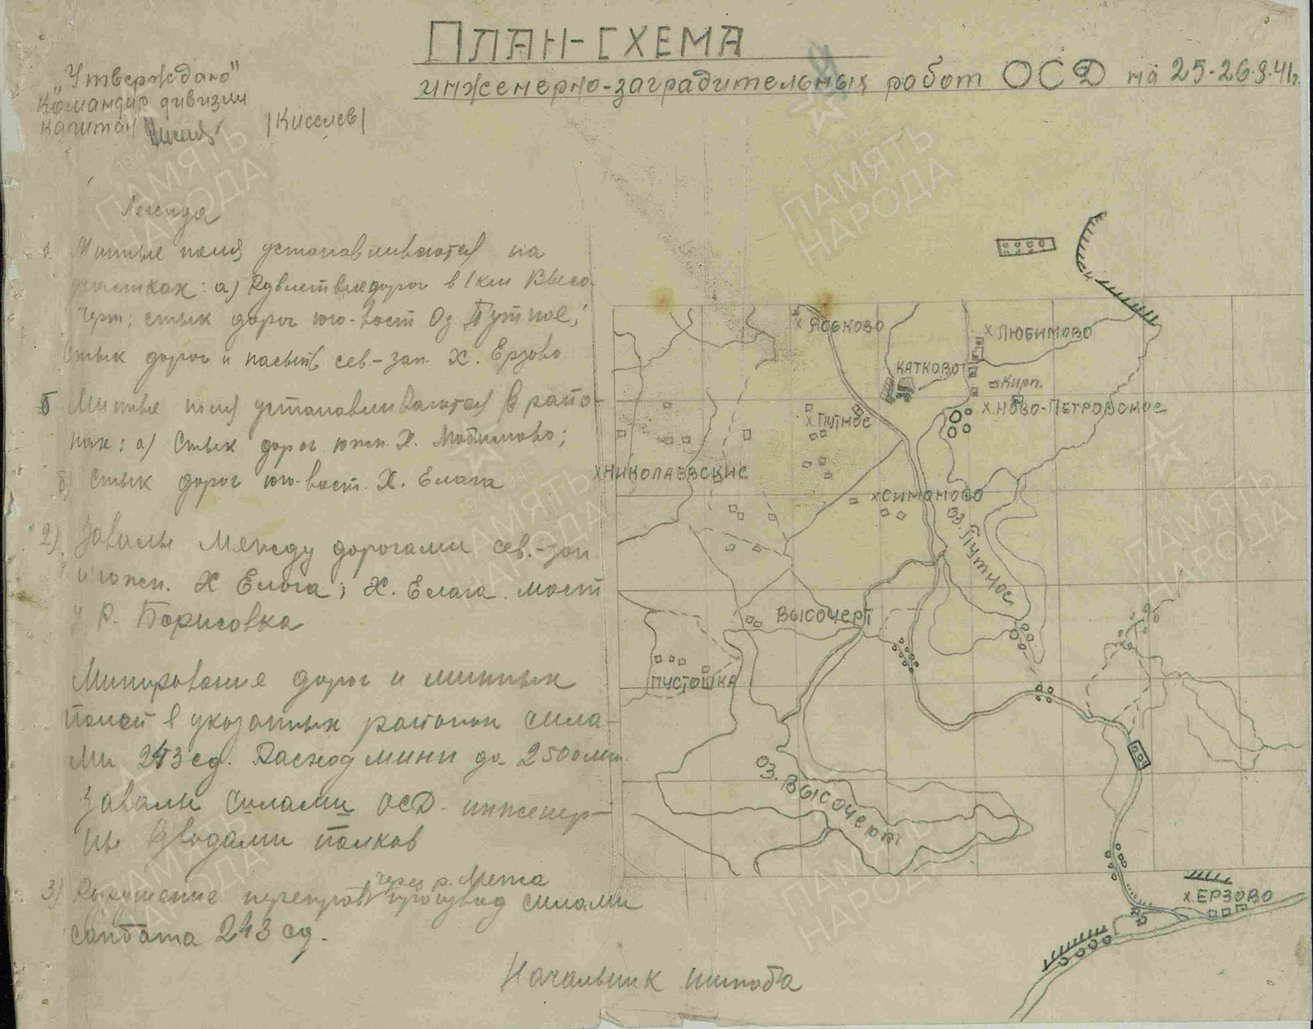 ПЛАН-СХЕМА
инженерно-заградительных работ ОСД на 25-26.9.41г.
"Утверждаю"
Командир дивизии
капитан /Киселев/
Легенда
1 Минные поля устанавливаются на
участках: а) в 1 км Высо
черт; стык дорог юго-вост Оз Путное;
Стык дорог и насыпь сев-зап. Х. Ерзово
б Минные поля устанавливаются в райо-
нах: а) Стык дорог южн. Х. Любимово;
б) Стык дорог юго-вост. Х. Елага
2) Завалы между дорогами сев.-зап
и южн. Х Елага; Х. Елага, мост
у Р. Борисовка
Минирование дорог и минных
полей в указанных районах сила-
ми 243 сд. Расход мин до 2500
Завалы силами ОСД инженер-
ны взводами полков
через р. Мета
3) Разрушение переправ силами
сапбата 243 сд.
Начальник штаба
Х ЯСЬКОВО
Х ЛЮБИМОВО
КАТКОВО
Кирп.
Х. НОВО-ПЕТРОВСКОЕ
Х. ПУТНОЕ
Х НИКОЛАЕВСКИЕ
Х СИМОНОВО
ОЗ. ПУТНОЕ
ВЫСОЧЕРТ
ПУСТОШКА
ОЗ. ВЫСОЧЕРТ
Х. ЕРЗОВО
ПАМЯТЬ
НАРОДА
ПАМЯТЬ
НАРОДА
ПАМЯТЬ
НАРОДА
ПАМЯТЬ
НАРОДА
ПАМЯТЬ
НАРОДА
ПАМЯТЬ
НАРОДА